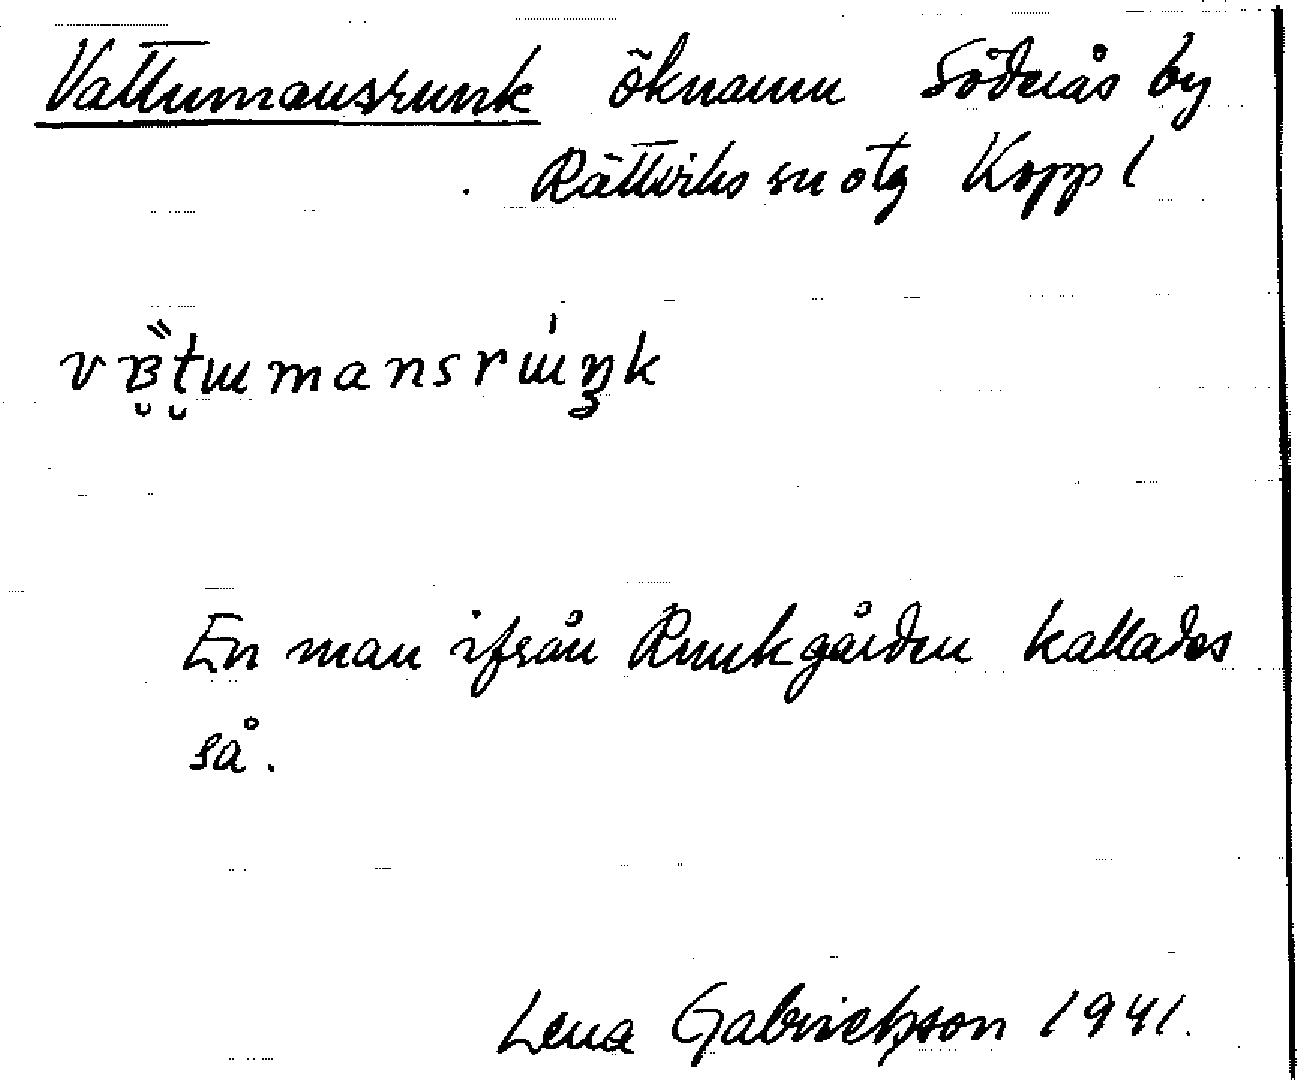 Vattumansrunk öknamn Söderås by
Rättviks sn otg Koppl
En man ifrån Runkgården kallades
så.
Lena Gabrielsson 1941.